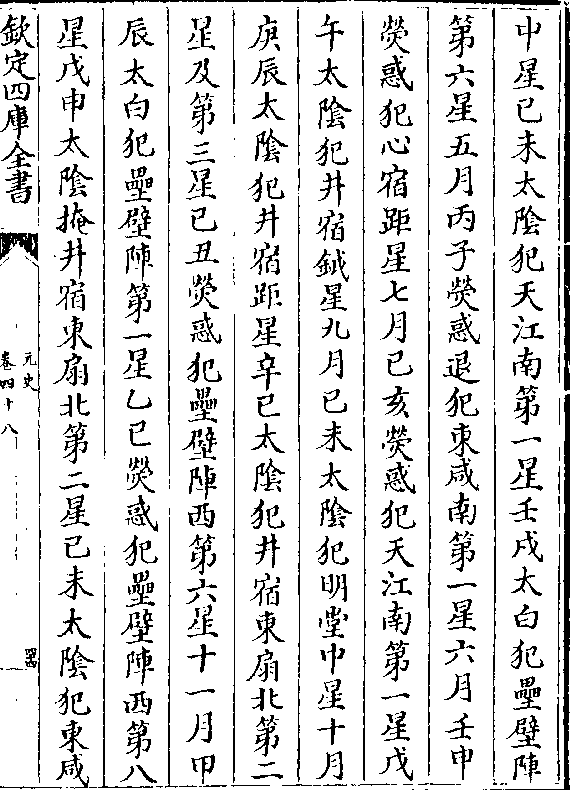 中星己未太陰犯天江南第一星壬戌太白犯壘壁陣
第六星五月丙子熒惑退犯東咸南第一星六月壬申
熒惑犯心宿距星七月己亥熒惑犯天江南第一星戊
午太陰犯井宿鉞星九月己未太陰犯明堂中星十月
庚辰太陰犯井宿距星辛巳太陰犯井宿東扇北第二
星及第三星己丑熒惑犯壘壁陣西第六星十一月甲
辰太白犯壘壁陣第一星乙巳熒惑犯壘壁陣西第八
星戊申太陰掩井宿東扇北第二星己未太陰犯東咸
欽定四庫全書
元史
卷四十八